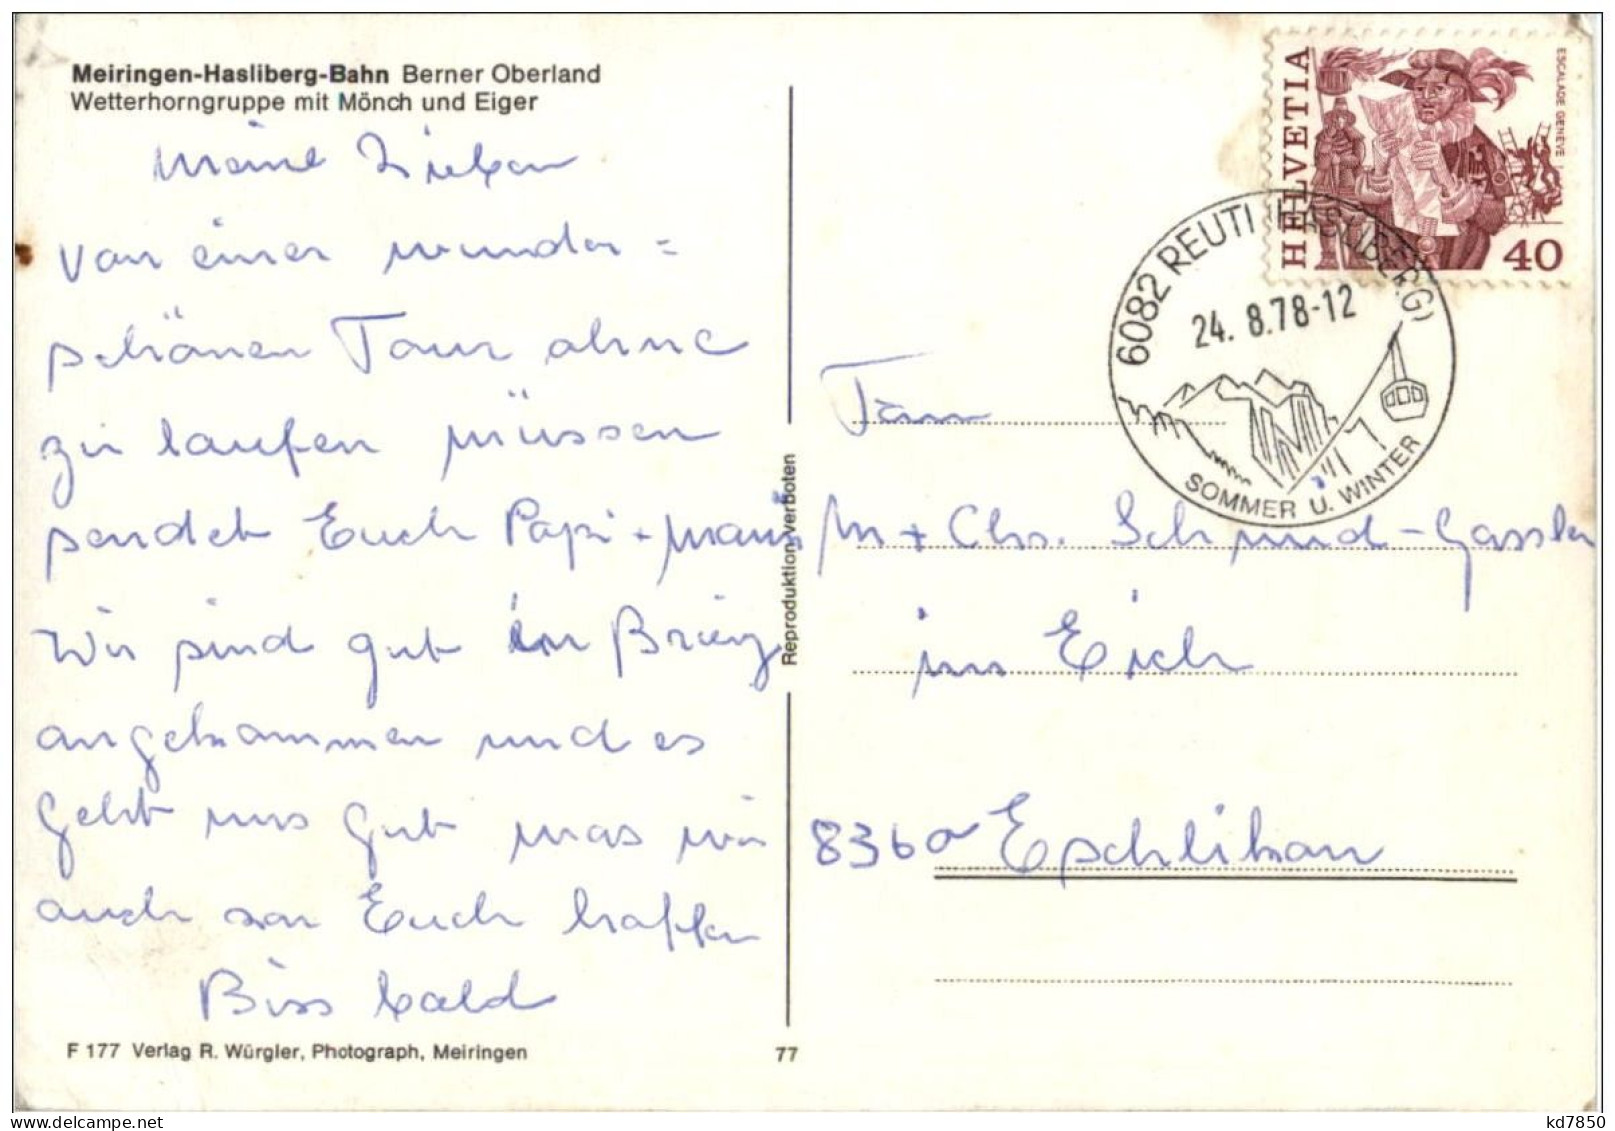 Meiringen-Hasliberg-Bahn Berner Oberland
Wetterhorngruppe mit Mönch und Eiger
Meine Lieben
von einer wunder=
schönen Tour ohne
zu laufen müssen
sendet Euch Papi + Mami
Wir sind gut in Brienz
angekommen und es
geht uns gut was wir
auch von Euch hoffen
Biss bald
F 177 Verlag R. Würgler, Photograph, Meiringen
77
Reproduktion verboten
HELVETIA
ESCALADE GENÈVE
40
6082 REUTI (HASLIBERG)
24. 8.78-12
SOMMER U. WINTER
Fam
M + Chs. Schmid-Gassler
im Eich
8360 Eschlikon
kd7850